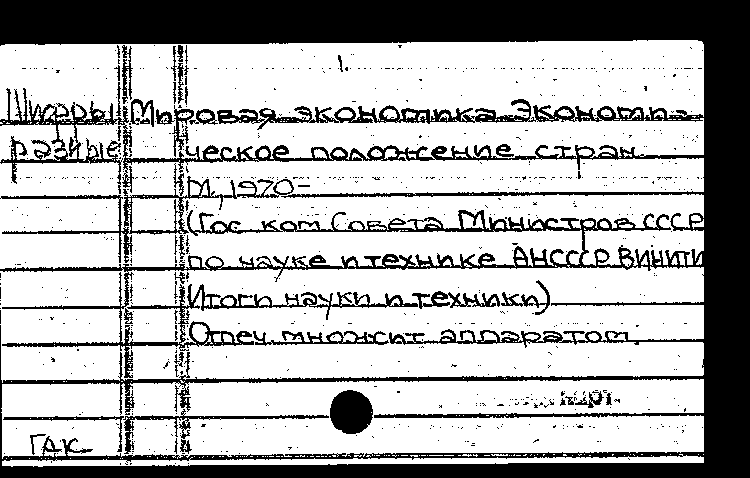 1.
Шифры Мировая экономика. Экономи-
разные ческое положение стран
М., 1970-
(Гос. ком. Совета Министров СССР
по науке и технике АН СССР ВИНИТИ
Итоги науки и техники)
Отпеч. множит. аппаратом.
карт.
ГАК